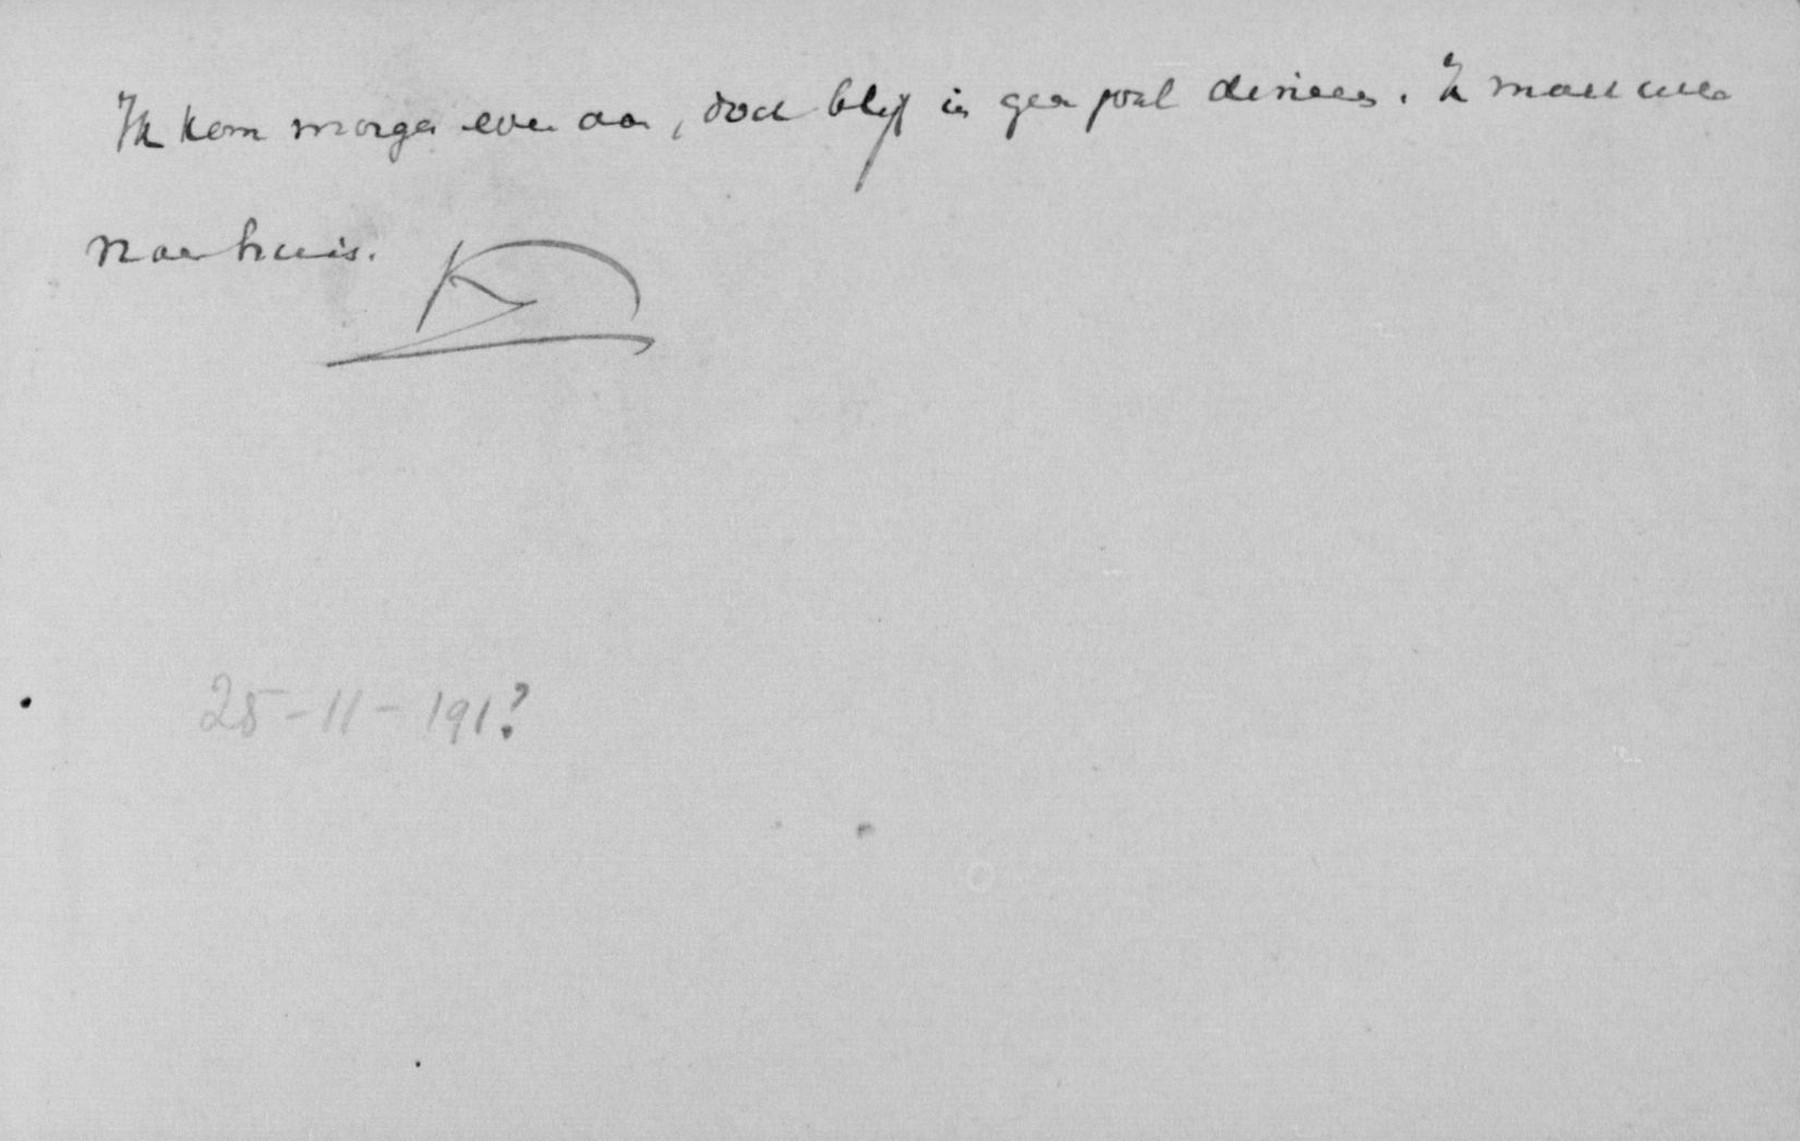 Ik kom morgen even aan, doch blijf in geen geval dineeren. Ik moet
naar huis.
K
25-11-191?